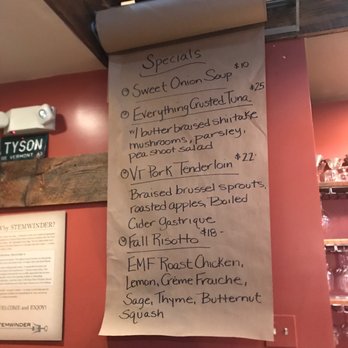 Specials
Sweet Onion Soup $10
Everything Crusted Tuna $25
w/ butter braised shiitake
mushrooms, parsley,
pea shoot salad
Vt Pork Tenderloin $22
Braised brussel sprouts,
roasted apples, Boiled
Cider gastrique
Fall Risotto $18-
EMF Roast Chicken,
Lemon, Crème Fraiche,
Sage, Thyme, Butternut
Squash
TYSON
VERMONT
STEMWINDER?
WELCOME and ENJOY!
STEMWINDER